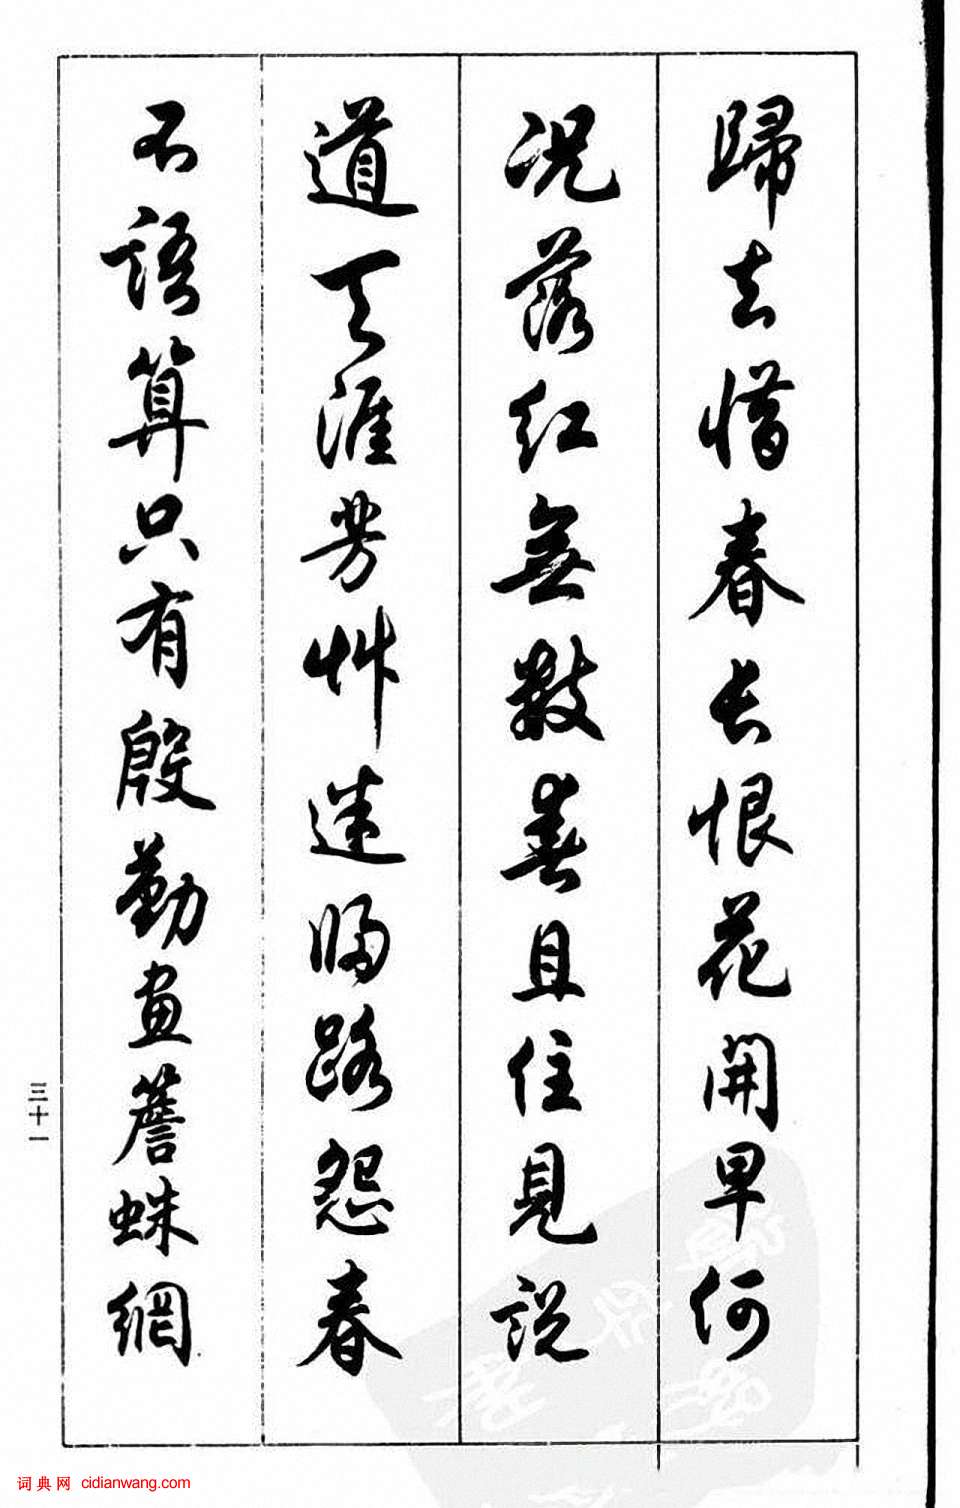 歸去惜春長恨花開早何
況落紅無數春且住見說
道天涯芳艸迷歸路怨春
不語算只有殷勤畫簷蛛網
三十一
词典网 cidianwang.com